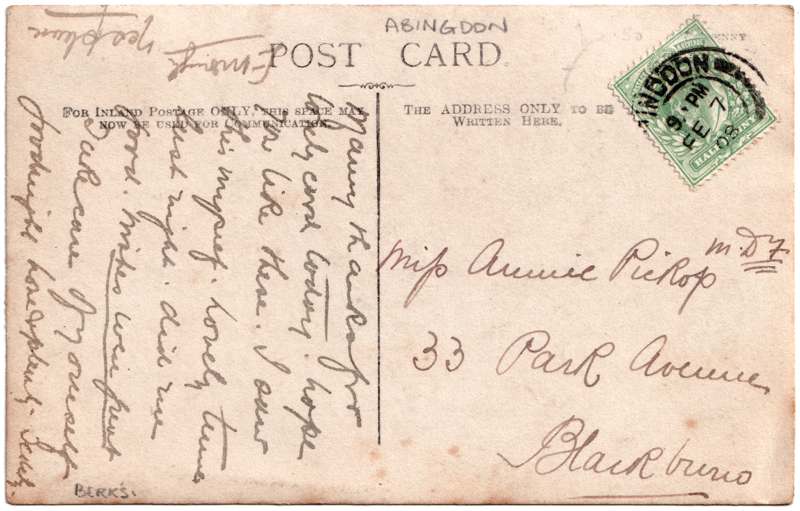 ABINGDON
POST CARD.
FOR INLAND POSTAGE ONLY, THIS SPACE MAY
NOW BE USED FOR COMMUNICATION.
THE ADDRESS ONLY TO BE
WRITTEN HERE.
PENNY
HALF
INGDON
9 PM
FE 7
08
Many thanks for
lovely card today. hope
you like these. I saw
this myself. lovely time
last night. did me
good.
Take care of yourself
Goodnight love
Miss Annie Pickop
33 Park Avenue
Blackburn
BERKS.